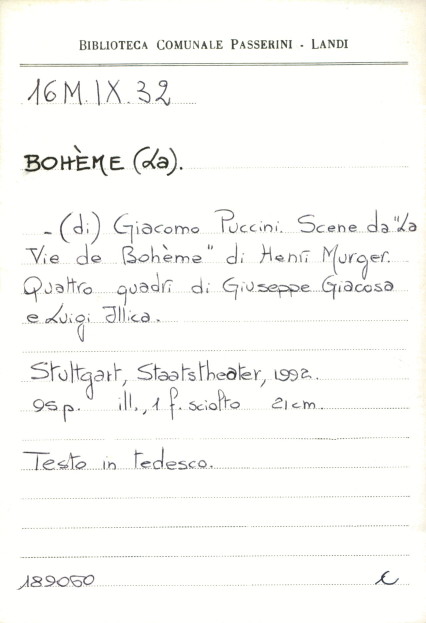 BIBLIOTECA COMUNALE PASSERINI - LANDI
16 M. IX. 32
BOHÈME (La).
- (di) Giacomo Puccini. Scene da "La
Vie de Bohème" di Henri Murger.
Quattro quadri di Giuseppe Giacosa
e Luigi Illica.
Stuttgart, Staatstheater, 1992.
95 p. ill., 1 f. sciolto 21 cm.
Testo in tedesco.
189050